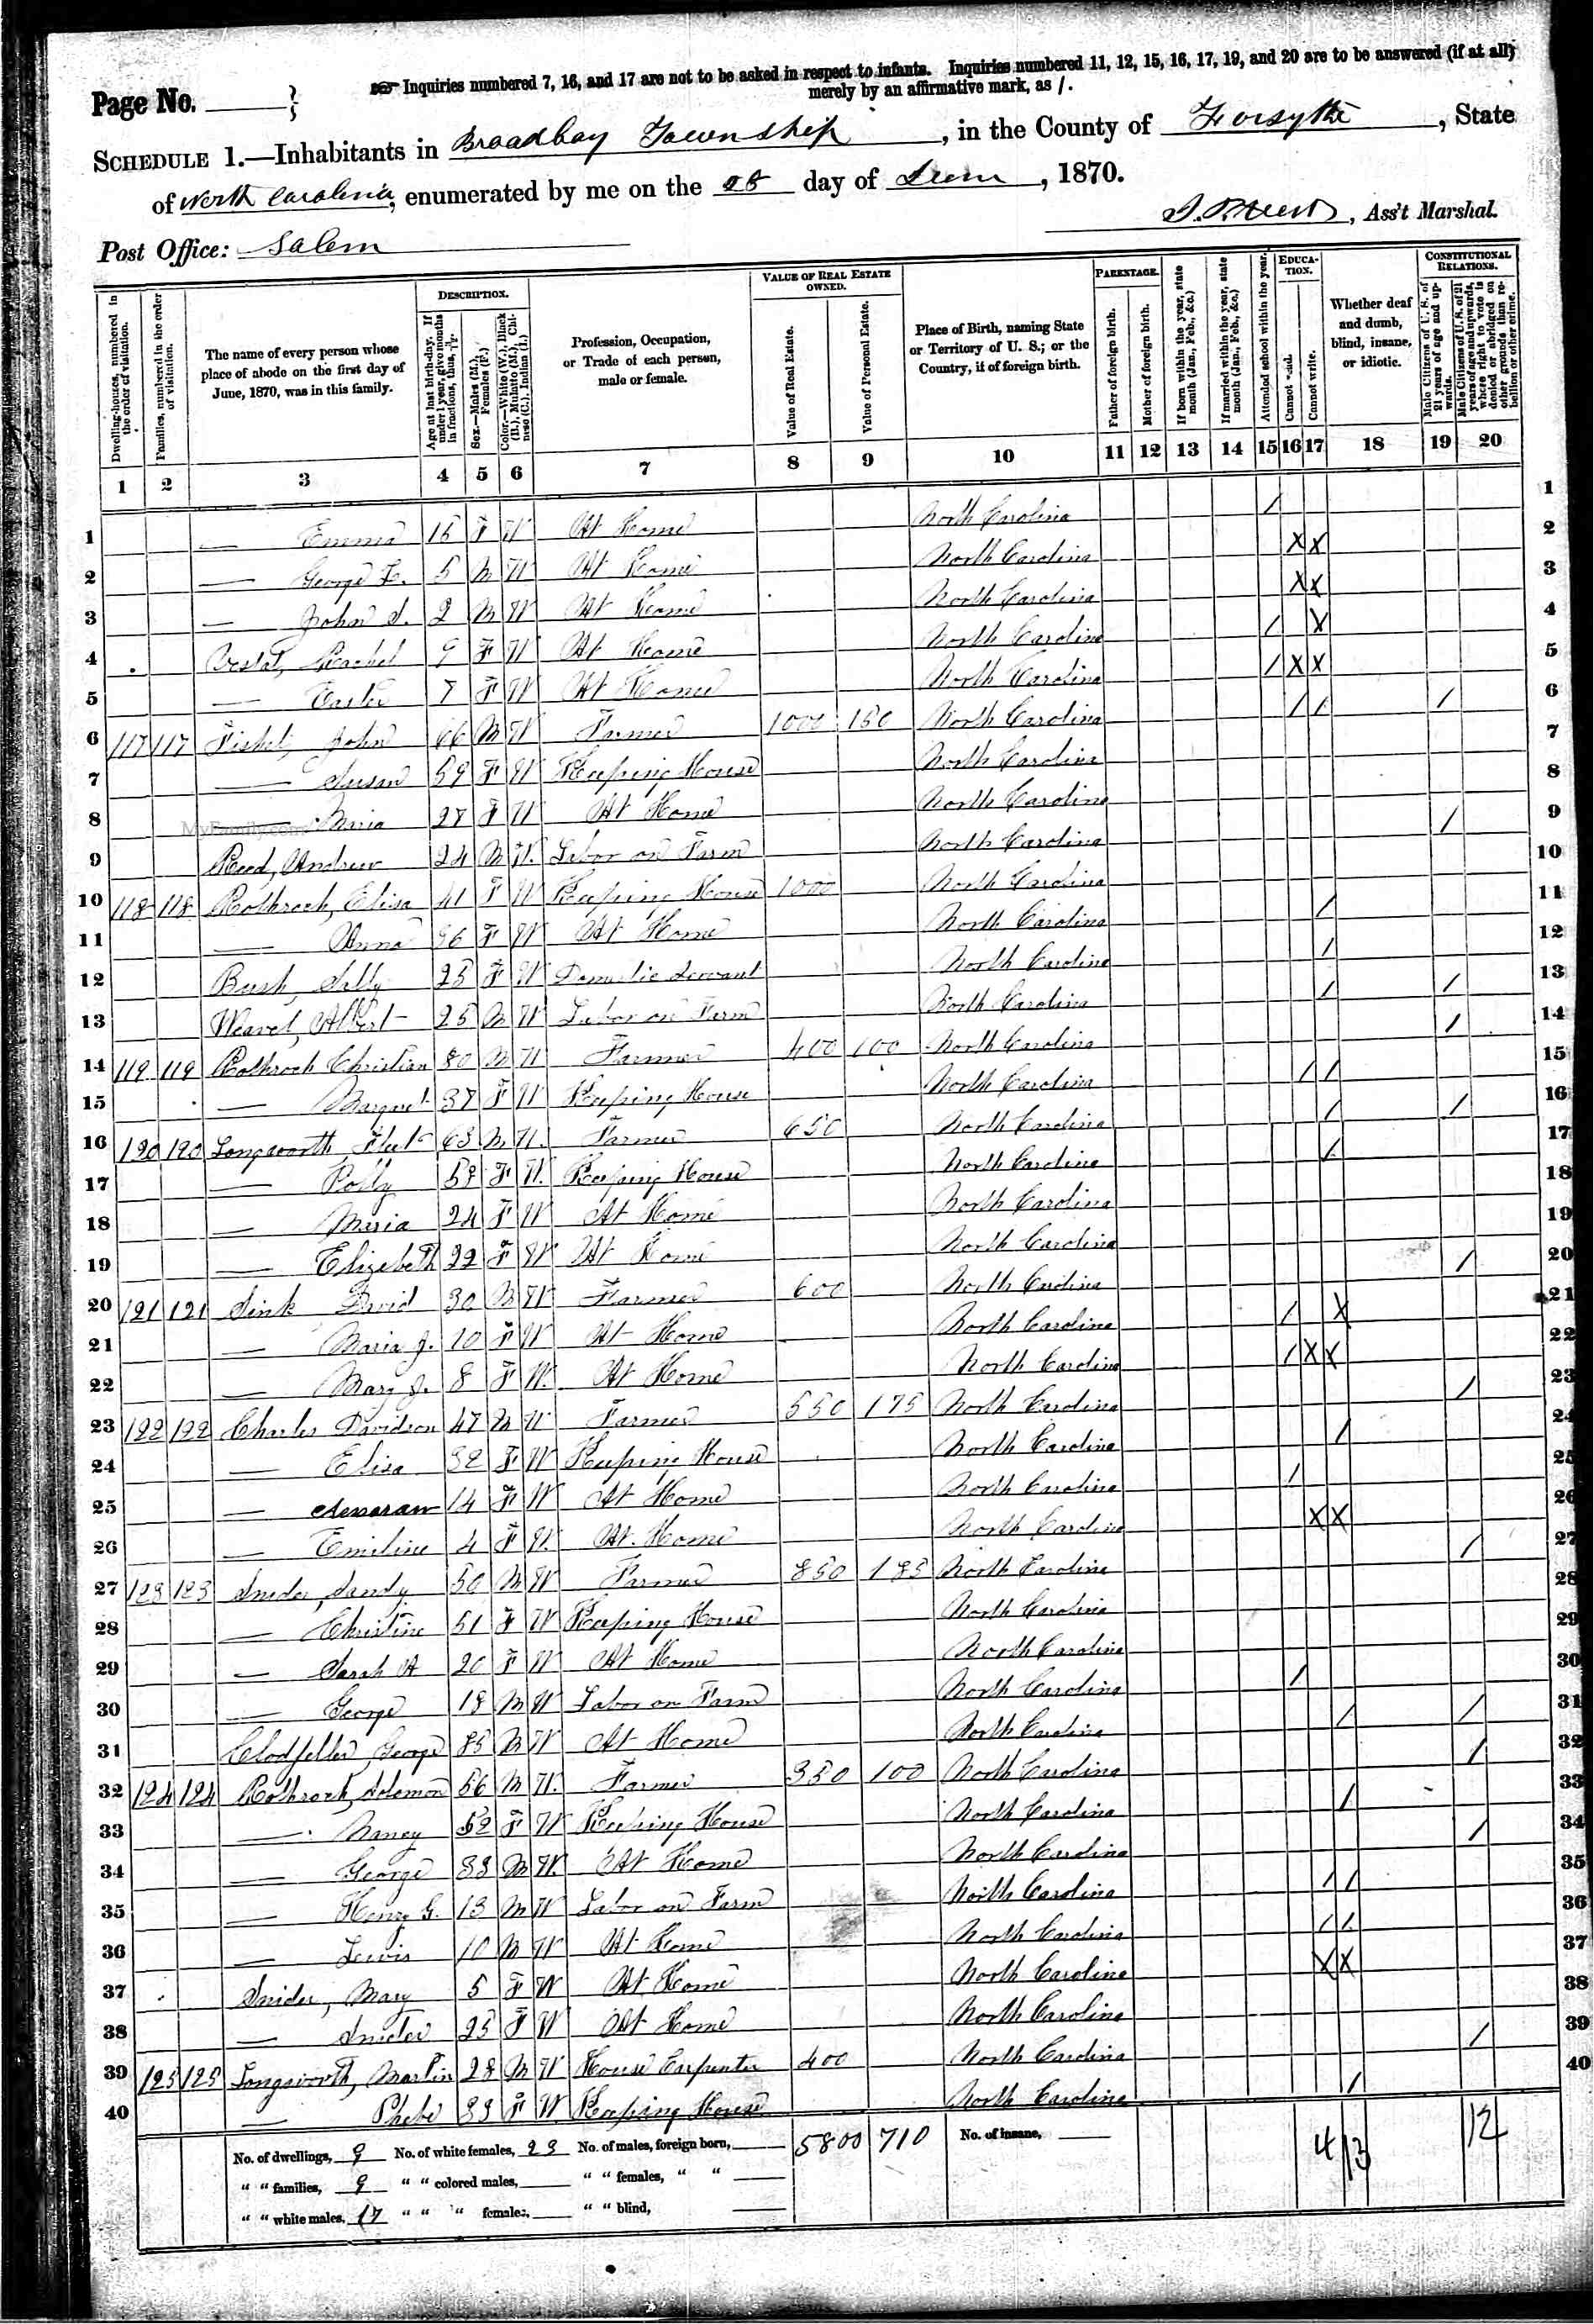 ☞ Inquiries numbered 7, 16, and 17 are not to be asked in respect to infants. Inquiries numbered 11, 12, 15, 16, 17, 19, and 20 are to be answered (if at all)
merely by an affirmative mark, as /.
Page No. }
SCHEDULE 1.—Inhabitants in Broadbay Township, in the County of Forsythe, State
of North Carolina, enumerated by me on the day of, 1870.
Post Office: Salem
, Ass't Marshal.
DESCRIPTION. VALUE OF REAL ESTATE OWNED. PARENTAGE. EDUCATION. CONSTITUTIONAL RELATIONS.
Dwelling-houses, numbered in the order of visitation.
Families, numbered in the order of visitation.
The name of every person whose place of abode on the first day of June, 1870, was in this family.
Age at last birth-day. If under 1 year, give months in fractions, thus,
Sex.—Males (M.), Females (F.)
Color.—White (W.), Black (B.), Mulatto (M.), Chinese (C.), Indian (I.)
Profession, Occupation, or Trade of each person, male or female.
Value of Real Estate.
Value of Personal Estate.
Place of Birth, naming State or Territory of U. S.; or the Country, if of foreign birth.
Father of foreign birth.
Mother of foreign birth.
If born within the year, state month (Jan., Feb., &c.)
If married within the year, state month (Jan., Feb., &c.)
Attended school within the year.
Cannot read.
Cannot write.
Whether deaf and dumb, blind, insane, or idiotic.
Male Citizens of U. S. of 21 years of age and upwards.
Male Citizens of U. S. of 21 years of age and upwards, whose right to vote is denied or abridged on other grounds than rebellion or other crime.
1 2 3 4 5 6 7 8 9 10 11 12 13 14 15 16 17 18 19 20
1 — Emma 15 F W At Home North Carolina / 1
2 — George 5 M W At Home North Carolina X X 2
3 — John 2 M W At Home North Carolina X X 3
4 Vestal, Rachel 9 F W At Home North Carolina / X 4
5 — 7 F W At Home North Carolina / X X 5
6 117 117 Fishel, John 66 M W Farmer 1000 150 North Carolina / / / 6
7 — Susan 59 F W Keeping House North Carolina 7
8 — Maria 27 F W At Home North Carolina 8
MyFamily.com
9 Reed, Andrew 24 M W. Labor on Farm North Carolina / 9
10 118 118 Rothrock, Elisa 41 F W Keeping House 1000 North Carolina 10
11 — Anna F W At Home North Carolina / 11
12 Bush, Sally 25 F W Domestic Servant North Carolina / 12
13 Weavel, Albert 25 M W Labor on Farm North Carolina / / 13
14 119 119 Rothrock Christian 80 M W Farmer 400 100 North Carolina / 14
15 — Margret 37 F W Keeping House North Carolina / / 15
16 120 120 Longworth, 63 M W. Farmer 650 North Carolina / / 16
17 — Polly F W. Keeping House North Carolina / 17
18 — Maria 24 F W At Home North Carolina 18
19 — Elizabeth 22 F W At Home North Carolina 19
20 121 121 Sink David 30 M W Farmer 600 North Carolina / 20
21 — Maria J. 10 F W At Home North Carolina / X 21
22 — Mary J. 8 F W. At Home North Carolina / X X 22
23 122 122 Charles Davidson 47 M W Farmer 550 175 North Carolina / 23
24 — Elisa 32 F W Keeping House North Carolina / 24
25 — 14 F W At Home North Carolina / 25
26 — Emiline 4 F W. At Home North Carolina X X 26
27 123 123 Snider, Sandy 50 M W Farmer 850 185 North Carolina / 27
28 — Christine 51 F W Keeping House North Carolina 28
29 — Sarah A 20 F W At Home North Carolina 29
30 — George 18 M W Labor on Farm North Carolina / 30
31 Clodfelter, George 85 M W At Home North Carolina / / 31
32 124 124 Rothrock, Solomon 56 M W. Farmer 350 100 North Carolina / 32
33 — Nancy 52 F W Keeping House North Carolina / 33
34 — George 33 M W. At Home North Carolina / 34
35 — Henry G. 13 M W Labor on Farm North Carolina / / 35
36 — Lewis 10 M W At Home North Carolina / / 36
37 Snider, Mary 5 F W At Home North Carolina X X 37
38 — Snider 25 F W At Home North Carolina 38
39 125 125 Longworth, Martin 28 M W House Carpenter 400 North Carolina / 39
40 — Phebe 33 F W Keeping House North Carolina / 40
No. of dwellings, 9 No. of white females, 23 No. of males, foreign born, 5800 710 No. of insane, 4 13 12
" " families, 9 " " colored males, " " females, " "
" " white males, 17 " " " females, " " blind,